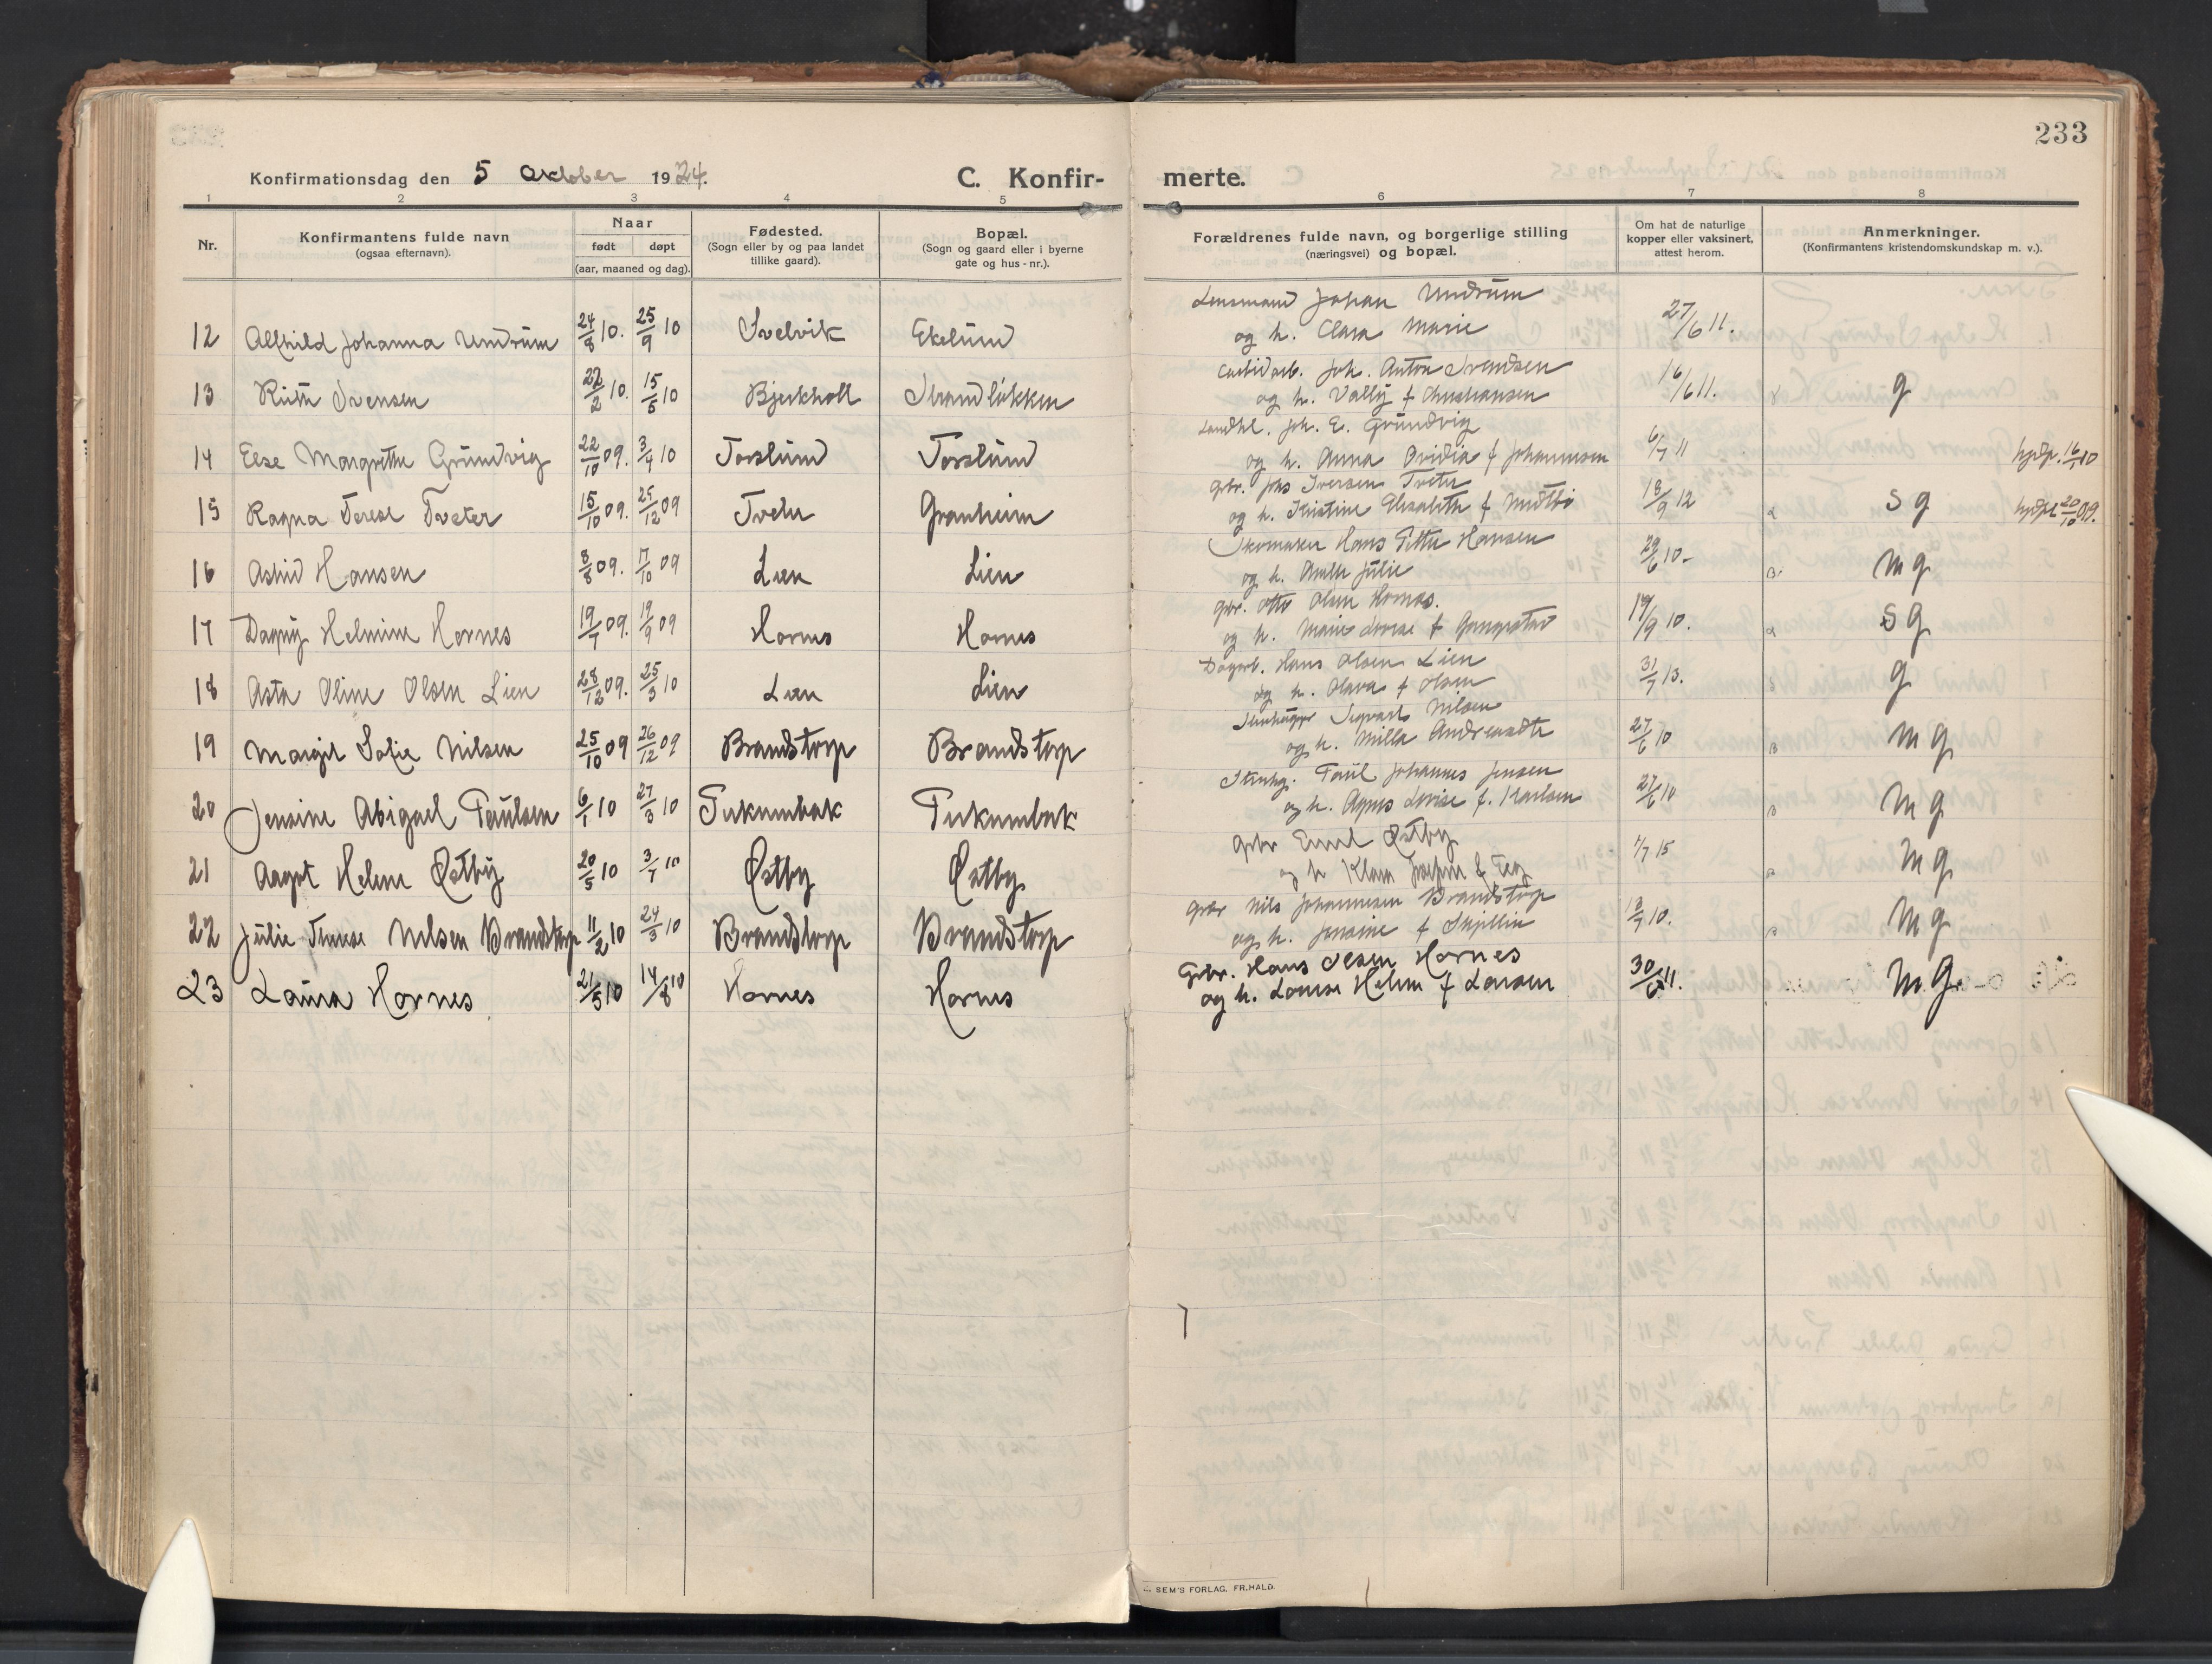 233
Konfirmationsdag den 5 Oktober 1924.
C. Konfir- merte.
1 2 3 4 5 6 7 8
Nr.
Konfirmantens fulde navn
(ogsaa efternavn).
Naar
født døpt
(aar, maaned og dag).
Fødested.
(Sogn eller by og paa landet
tillike gaard).
Bopæl.
(Sogn og gaard eller i byerne
gate og hus-nr.).
Forældrenes fulde navn, og borgerlige stilling
(næringsvei) og bopæl.
Om hat de naturlige
kopper eller vaksinert,
attest herom.
Anmerkninger.
(Konfirmantens kristendomskundskap m. v.).
Lensmand Johan Undrum
12 Alfhild Johanna Undrum 24/8 10. 25/9 10 Svelvik Ekelund og h. Clara Marie 27/6 11.
Joh. Anton Svendsen
13 Ruth Svensen 22/2 10. 15/5 10 Bjerkholt Strandløkken og h. Vally f 16/6 11. g
Landhl. Joh. E. Grundvig
14 Else Margrethe Grundvig 22/10 09. 3/4 10 Torslund Torslund og h. Anna Ovidia f Johannesen 6/7 11 hjdp. 16/1 10
Gbr. Johs Iversen Tveter
15 Ragna Terese Tveter 15/10 09. 25/12 09 Tveter Granheim og h. Kristine Elisabeth f 18/9 12 Sg hjdpt 20/10 09.
Skomaker Hans Petter Hansen
16 Astrid Hansen 8/8 09. 17/10 09 Lien Lien og h. Anette Julie 29/6 10- mg
Gbr. Otto Olsen Hornes.
17 Dagny Helmine Hornes 19/7 09. 19/9 09 Hornes Hornes og h. Marie Lovise f 19/9 10. Sg
Dagarb. Hans Olsen Lien
18 Asta Oline Olsen Lien 28/12 09. 25/3 10 Lien Lien og h. Olava f Olsen 31/7 13. g
Stenhugger Sigvart Nilsen
19 Margit Sofie Nilsen 25/10 09 26/12 09 Brandstorp Brandstorp og h. Milla Andreasdtr 27/6 10 mg
Stenhg. Paul Johannes Jensen
20 Jensine Abigael Paulsen 6/1 10 27/3 10 og h. Agnes Lovise f. Karlsen 27/6 10 mg
Gbr Emil Østby
21 Aagot Helene Østby 20/5 10 3/7 10 Østby Østby og h Klara Josefine f 1/7 15 mg
Gbr Nils Johannesen Brandstorp
22 Julie Therese Nilsen Brandstorp 11/2 10 24/3 10 Brandstorp Brandstorp og h. Jensine f Skjellin 13/7 10. mg
Gbr. Hans Olsen Hornes
23 Laura Hornes 21/5 10 14/8 10 Hornes Hornes og h. Lovise Helene f Larsen 30/6 11. mg.
SEM'S FORLAG. FR.HALD.